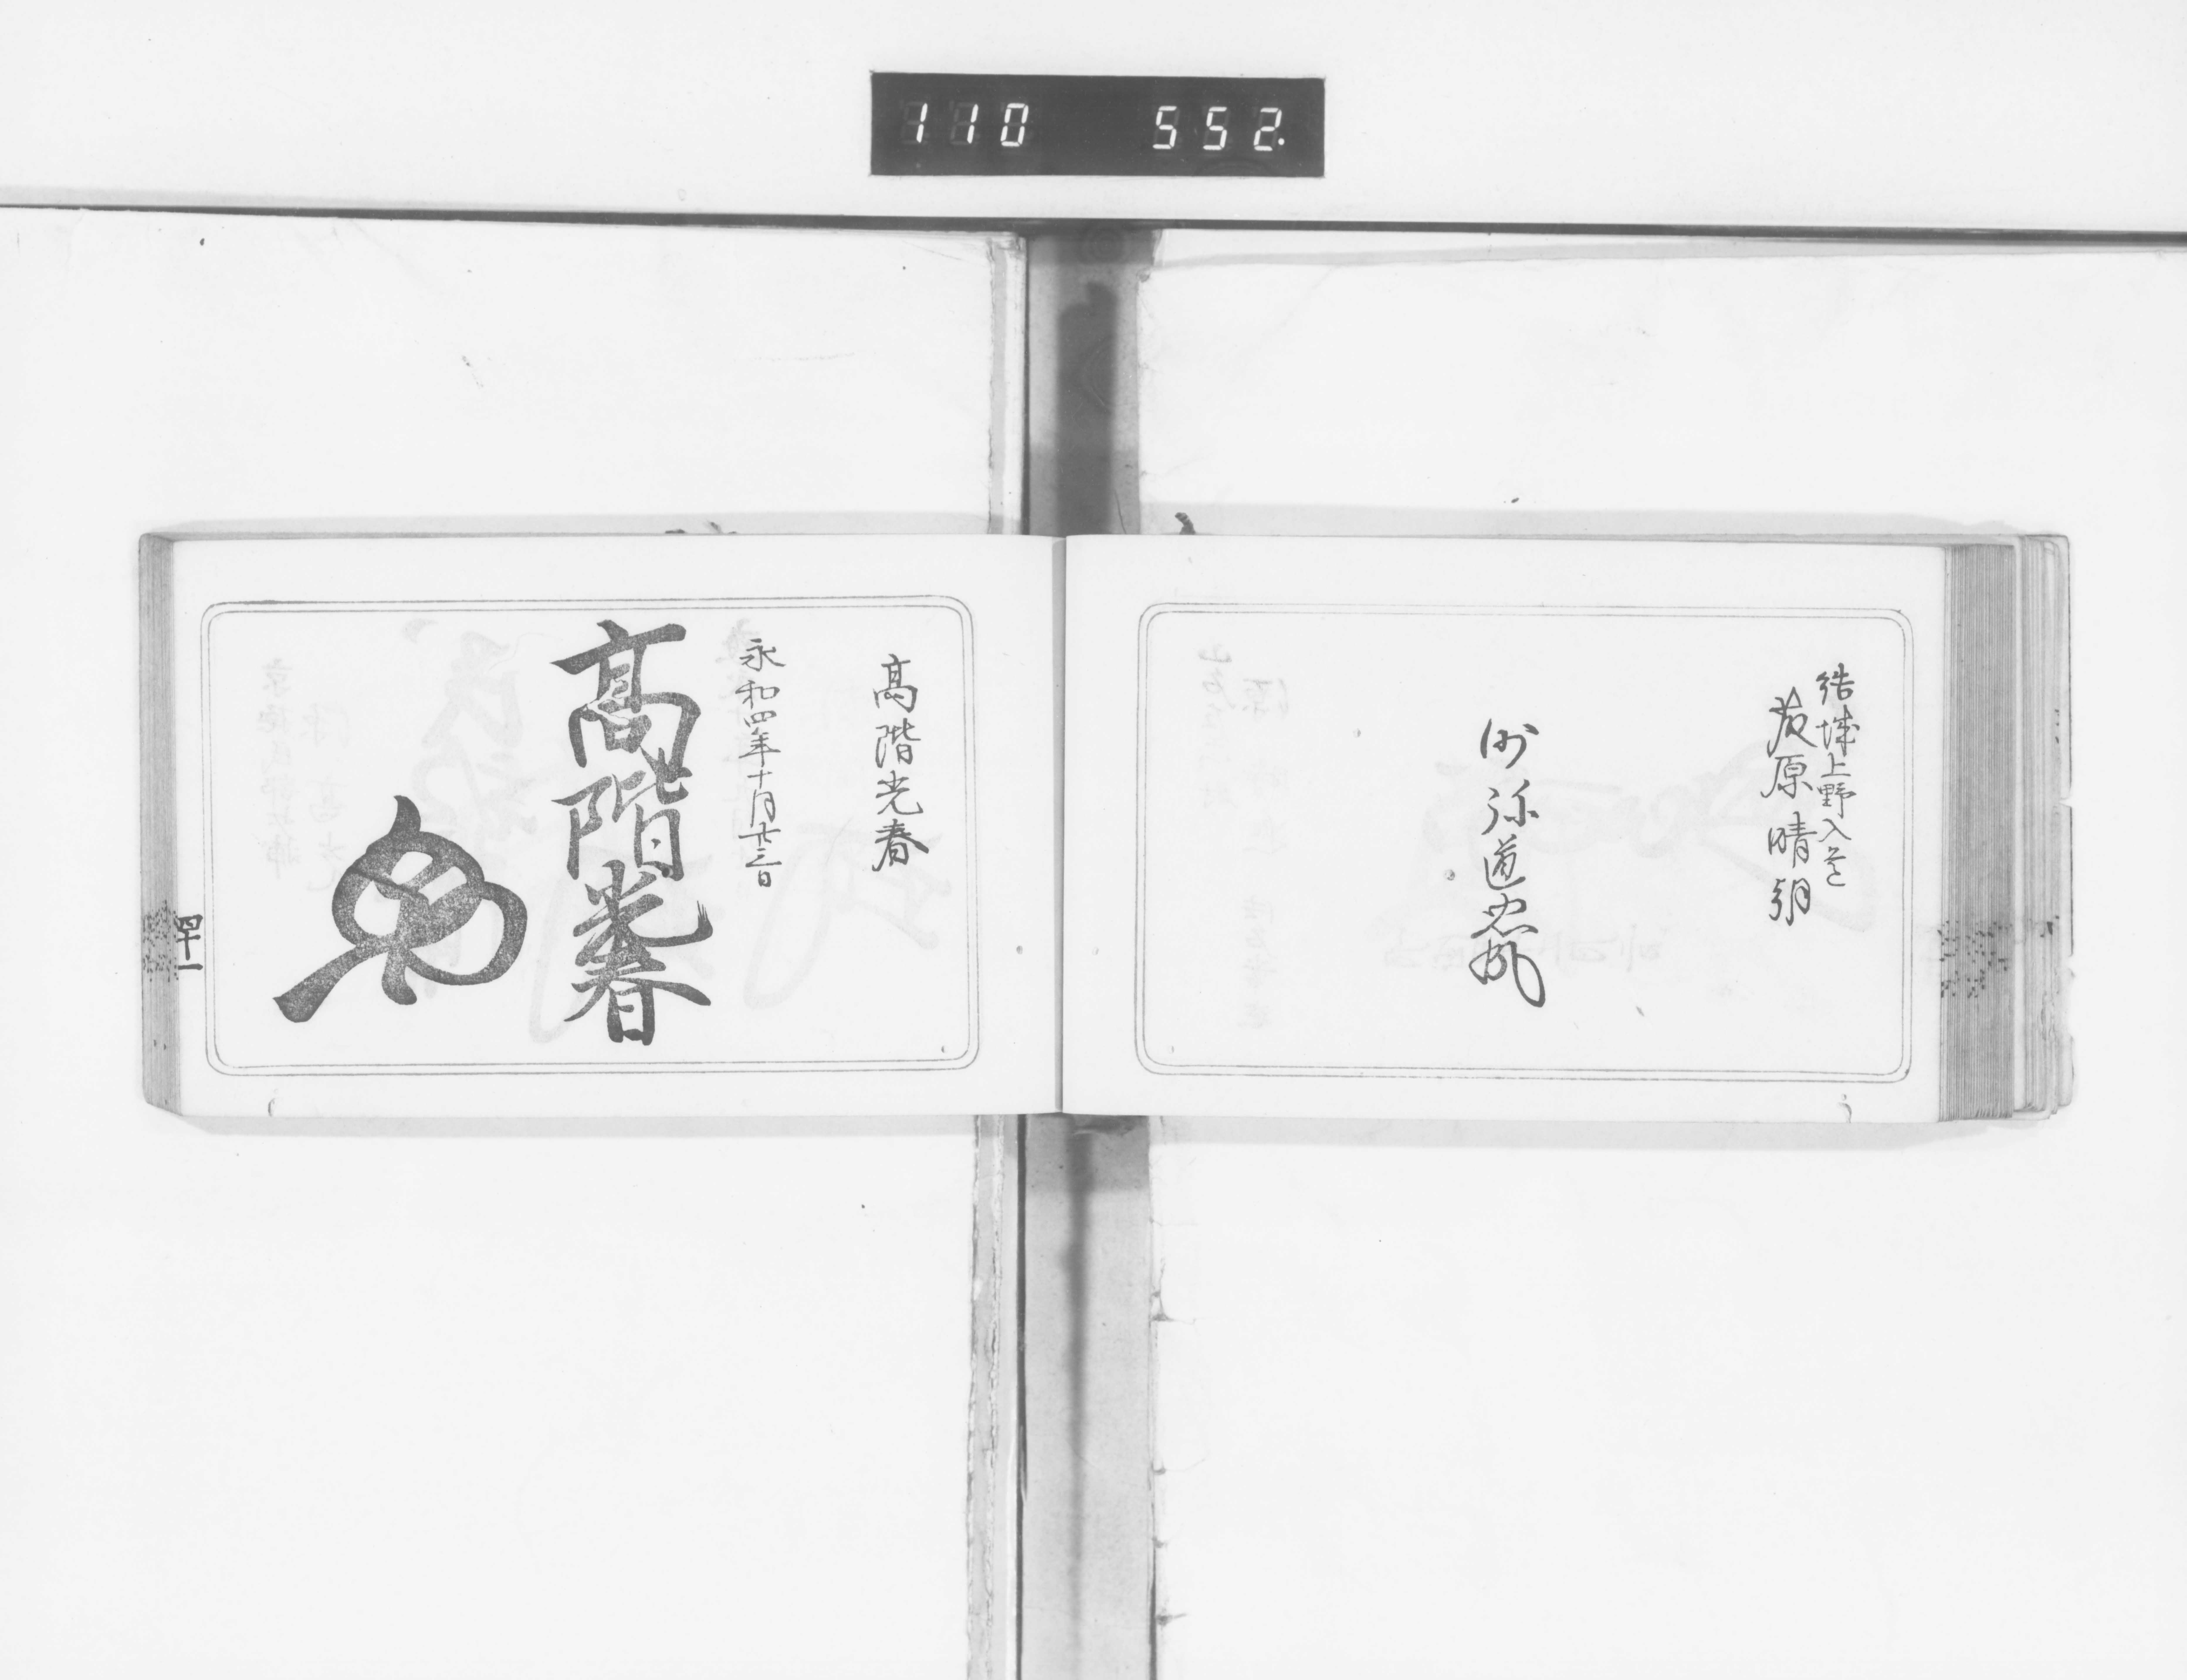 110 552.
結城上野入道
藤原晴朝
沙弥道
高階光春
永和四年十月廿三日
高階光春
四十一